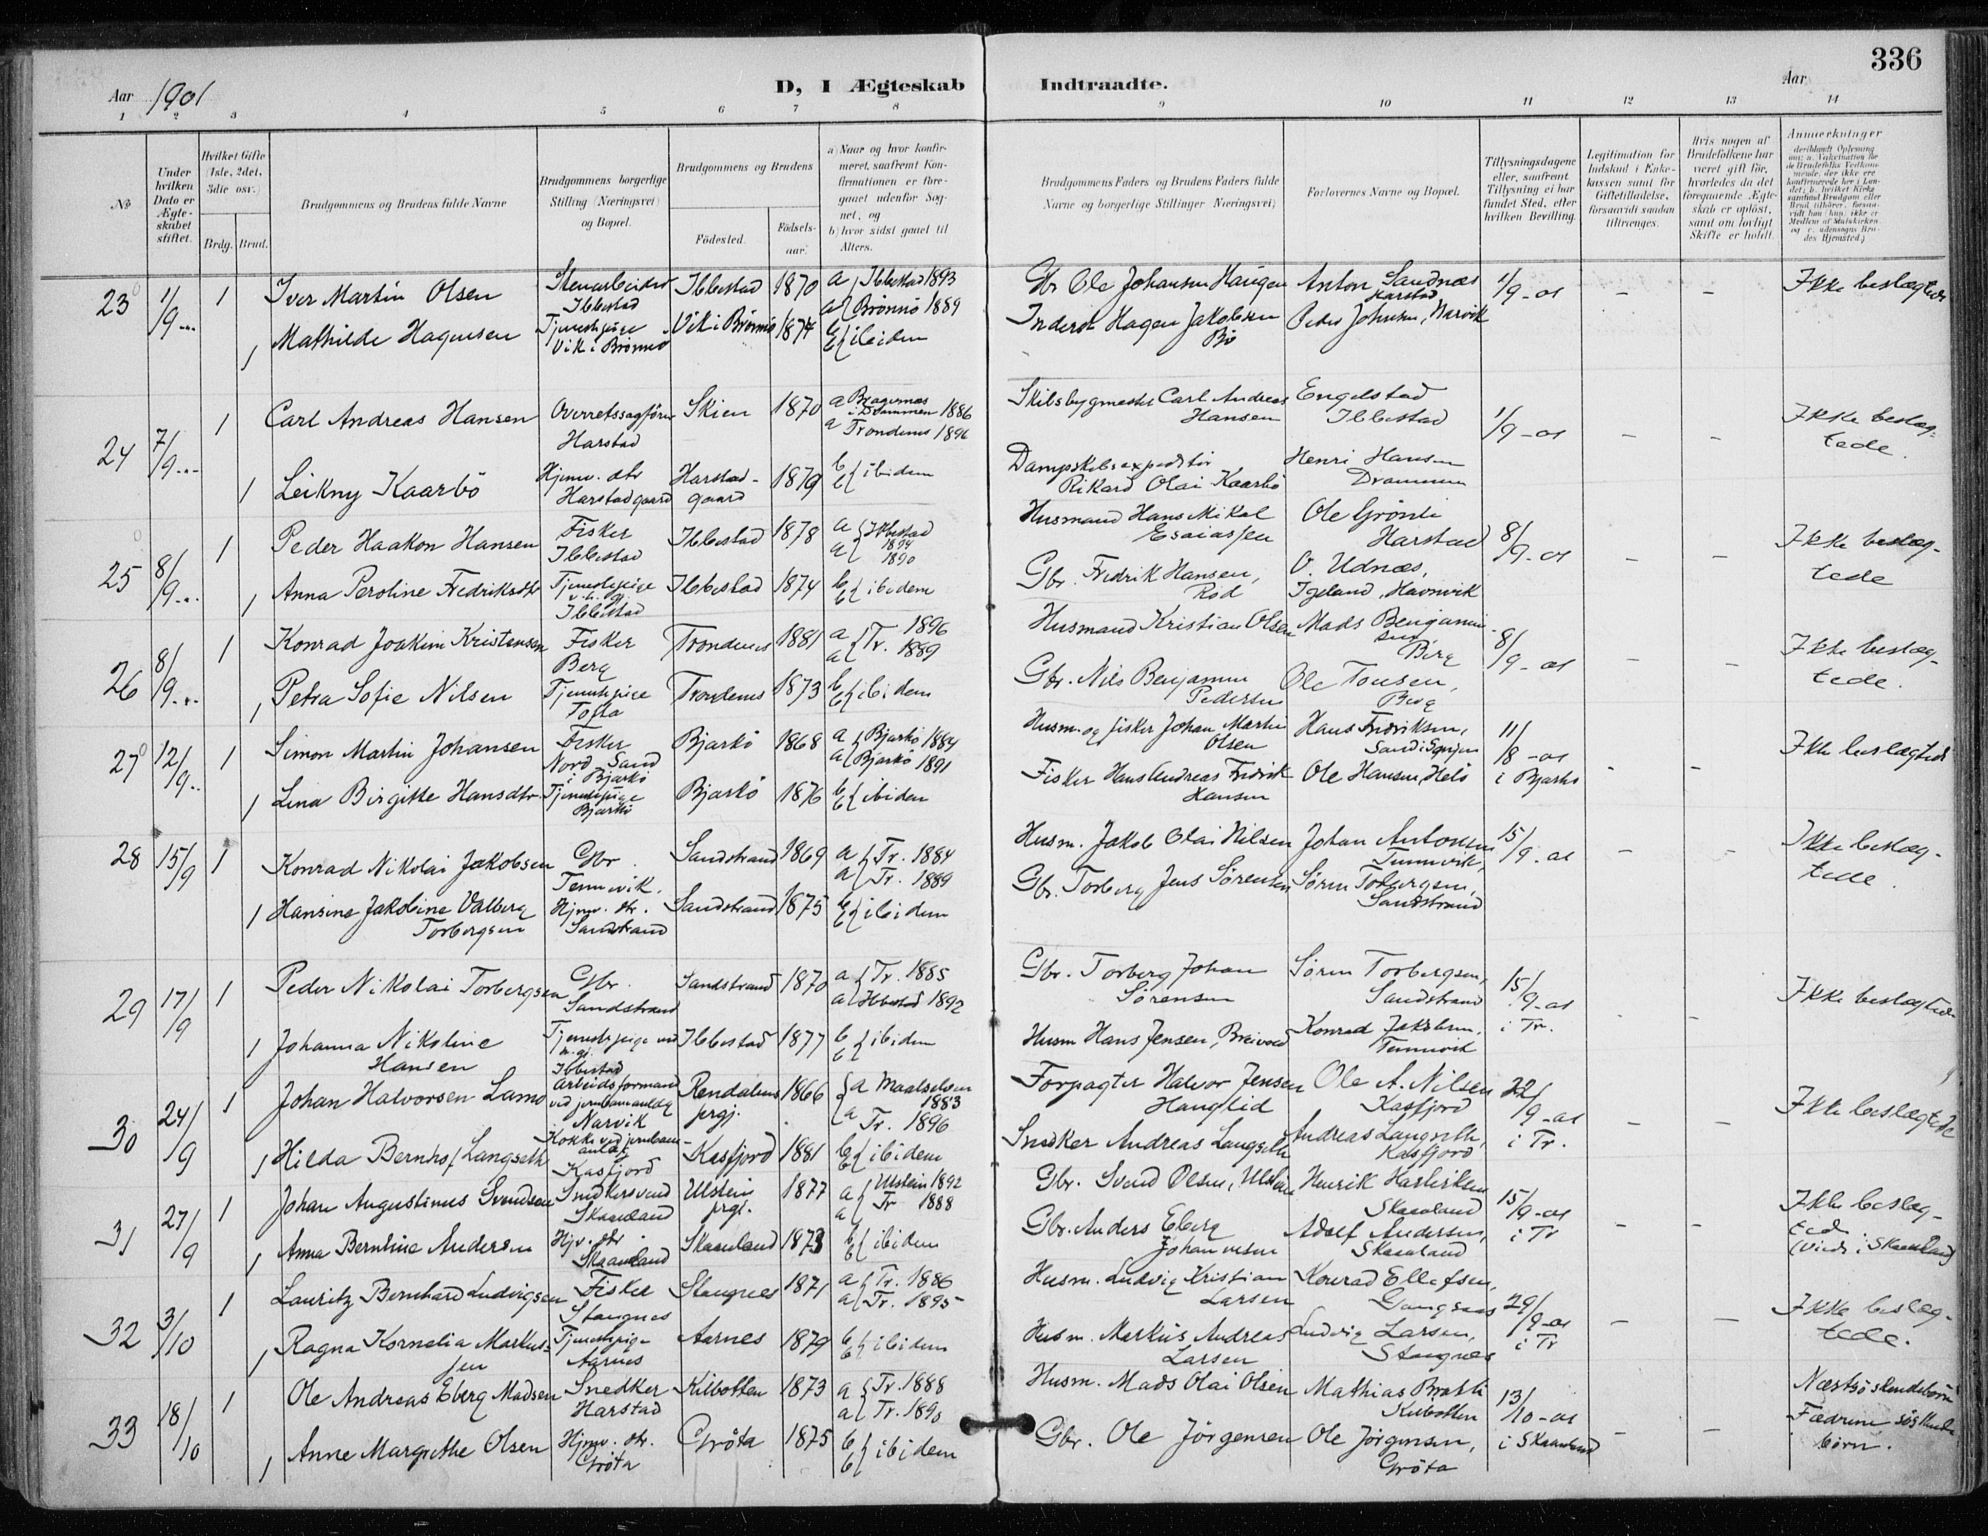 336
Aar 1901
D, I Ægteskab Indtraadte.
Aar
1 2 3 4 5 6 7 8 9 10 11 12 13 14
№
Under hvilken Dato er Ægteskabet stiftet.
Hvilket Gifte (1ste, 2det, 3die osv.)
Brdg. Brud.
Brudgommens og Brudens fulde Navne
Brudgommens borgerlige Stilling (Næringsvei) og Bopæl.
Brudgommens og Brudens
Fødested.
Fødselsaar.
a) Naar og hvor konfirmeret, saafremt Konfirmationen er foregaaet udenfor Sognet, og
b) hvor sidst gaaet til Alters.
Brudgommens Faders og Brudens Faders fulde Navne og borgerlige Stillinger (Næringsvei)
Forlovernes Navne og Bopæl.
Tillysningsdagene eller, saafremt Tillysning ei har fundet Sted, efter hvilken Bevilling.
Legitimation for Indskud i Enkekassen samt for Giftetilladelse, forsaavidt saadan tiltrænges.
Hvis nogen af Brudefolkene har været gift før, hvorledes da det foregaaende Ægteskab er opløst, samt om lovligt Skifte er holdt.
Anmerkninger
23 1/9 1 Iver Martin Olsen Stenarbeider Ibbestad Ibbestad 1870 a Ibbestad 1893 a Brønnø 1889 Gbr Ole Johansen Haugen Anton Sandnæs Harstad 1/9-01 – – Ikke beslægtede
1 Mathilde Hagensen Tjenestepige Vik i Brønnø Vik i Brønnø 1874 b b ibidem Inderst Hagen Jakobsen Bø Peder Johnsen, Narvik
24 7/9 1 Carl Andreas Hansen Overretssagfører Harstad Skien 1870 a Bragernæs i Drammen 1886 a Trondenes 1896 Skibsbygmester Carl Andreas Hansen Engelstad Ibbestad 1/9-01 – – Ikke beslægtede.
1 Leikny Kaarbø Hjemv. dtr Harstadgaard Harstadgaard 1879 b b ibidem Dampskibsexpeditør Rikard Olai Kaarbø Henri Hansen Drammen
25 8/9 1 Peder Haakon Hansen Fisker Ibbestad Ibbestad 1878 a a Ibbestad 1894 1890 Husmand Hans Mikal Esaiassen Ole Grønli Harstad 8/9-01 – – Ikke beslægtede
1 Anna Peroline Fredriksdtr Tjenestepige Ibbestad Ibbestad 1874 b b ibidem Gbr. Fredrik Hansen, Rød O. Udnæs, Igeland, Havnvik
26 8/9 1 Konrad Joakim Kristensen Fisker Berg Trondenes 1881 a a Tr. 1896 1889 Husmand Kristian Olsen Mads Benjaminsen Berg 8/9-01 – – Ikke beslægtede.
1 Petra Sofie Nilsen Tjenestepige Tofta Trondenes 1873 b b ibidem Gbr. Nils Benjamin Pedersen Ole Tousen, Berg
27 12/9 1 Simon Martin Johansen Fisker Nord Sand i Bjarkø Bjarkø 1868 a Bjarkø 1884 a Bjarkø 1891 Husm. og fisker Johan Martin Olsen Hans Fredriksen, 11/8-01 i Bjarkø – – Ikke beslægtede
1 Lina Birgitte Hansdtr Tjenestepige Bjarkø Bjarkø 1876 b b ibidem Fisker Hans Andreas Fredrik Hansen Ole Hansen, Helø
28 15/9 1 Konrad Nikolai Jakobsen Gbr. Tennevik. Sandstrand 1869 a Tr. 1884 a Tr. 1889 Husm. Jakob Olai Nilsen Johan Antonsen Tennevik, 15/9-01 – – Ikke beslægtede.
1 Hansine Jakobine Valberg Torbergsen Hjmv. dtr. Sandstrand Sandstrand 1875 b b ibidem Gbr. Torberg Jens Sørensen Søren Torbergsen, Sandstrand
29 17/9 1 Peder Nikolai Torbergsen Gbr. Sandstrand Sandstrand 1870 a Tr. 1885 a Ibbestad 1892 Gbr. Torberg Johan Sørensen Søren Torbergsen, Sandstrand 15/9-01 i Tr. – – Ikke beslægtede
1 Johanna Nikoline Hansen Tjenestepige Ibbestad Ibbestad 1877 b b ibidem Husm Hans Jensen, Breivold Konrad Jakobsen, Tennevik
30 24/9 1 Johan Halvorsen Lamo Arbeidsformand ved jernbaneanlæg Narvik Rendalens prgj. 1866 a Maalselven 1883 a Tr. 1896 Forpagter Halvor Jensen Hanglid Ole A. Nilsen Kasfjord 22/9-01 i Tr. – – Ikke beslægtede
1 Hilda Bernhof Langseth Kokke ved jernbaneanlæg Kasfjord Kasfjord 1881 b b ibidem Snedker Andreas Langseth Andreas Langseth, Kasfjord
31 27/9 1 Johan Augustinus Svendsen Snedkersvend Skaanland Ulstein prgj. 1877 a Ulstein 1892 a Tr 1888 Gbr. Svend Olsen, Ulstein Henrik Skaanland 15/9-01 i Tr – – Ikke beslægtede (Viede i Skaanland)
1 Anna Bernhine Andersen Hjv. dtr Skaanland Skaanland 1873 b b ibidem Gbr. Anders Eberg Johannesen Adolf Andersen, Skaanland
32 3/10 1 Lauritz Bernhard Ludvigsen Fisker Stangnes Stangnes 1871 a Tr. 1886 a Tr. 1895 Husm. Ludvig Kristian Larsen Konrad Ellefsen, Gangsaas 29/9-01 i Tr – – Ikke beslægtede.
1 Ragna Kornelia Markussen Tjenestepige Aarnes Aarnes 1879 b b ibidem Husm. Markus Andreas Larsen Ludvig Larsen, Stangnes
33 18/10 1 Ole Andreas Eberg Madsen Snedker Harstad Kilbotten 1873 a Tr. 1888 a Tr. 1890 Husm. Mads Olai Olsen Mathias Kilbotten 13/10-01 i Skaanland – – Næstsøskendebørn Fædrene søskendebørn.
1 Anne Margrethe Olsen Hjmv. dtr. Grøta Grøta 1875 b b ibidem Gbr. Ole Jørgensen Ole Jørgensen, Grøta